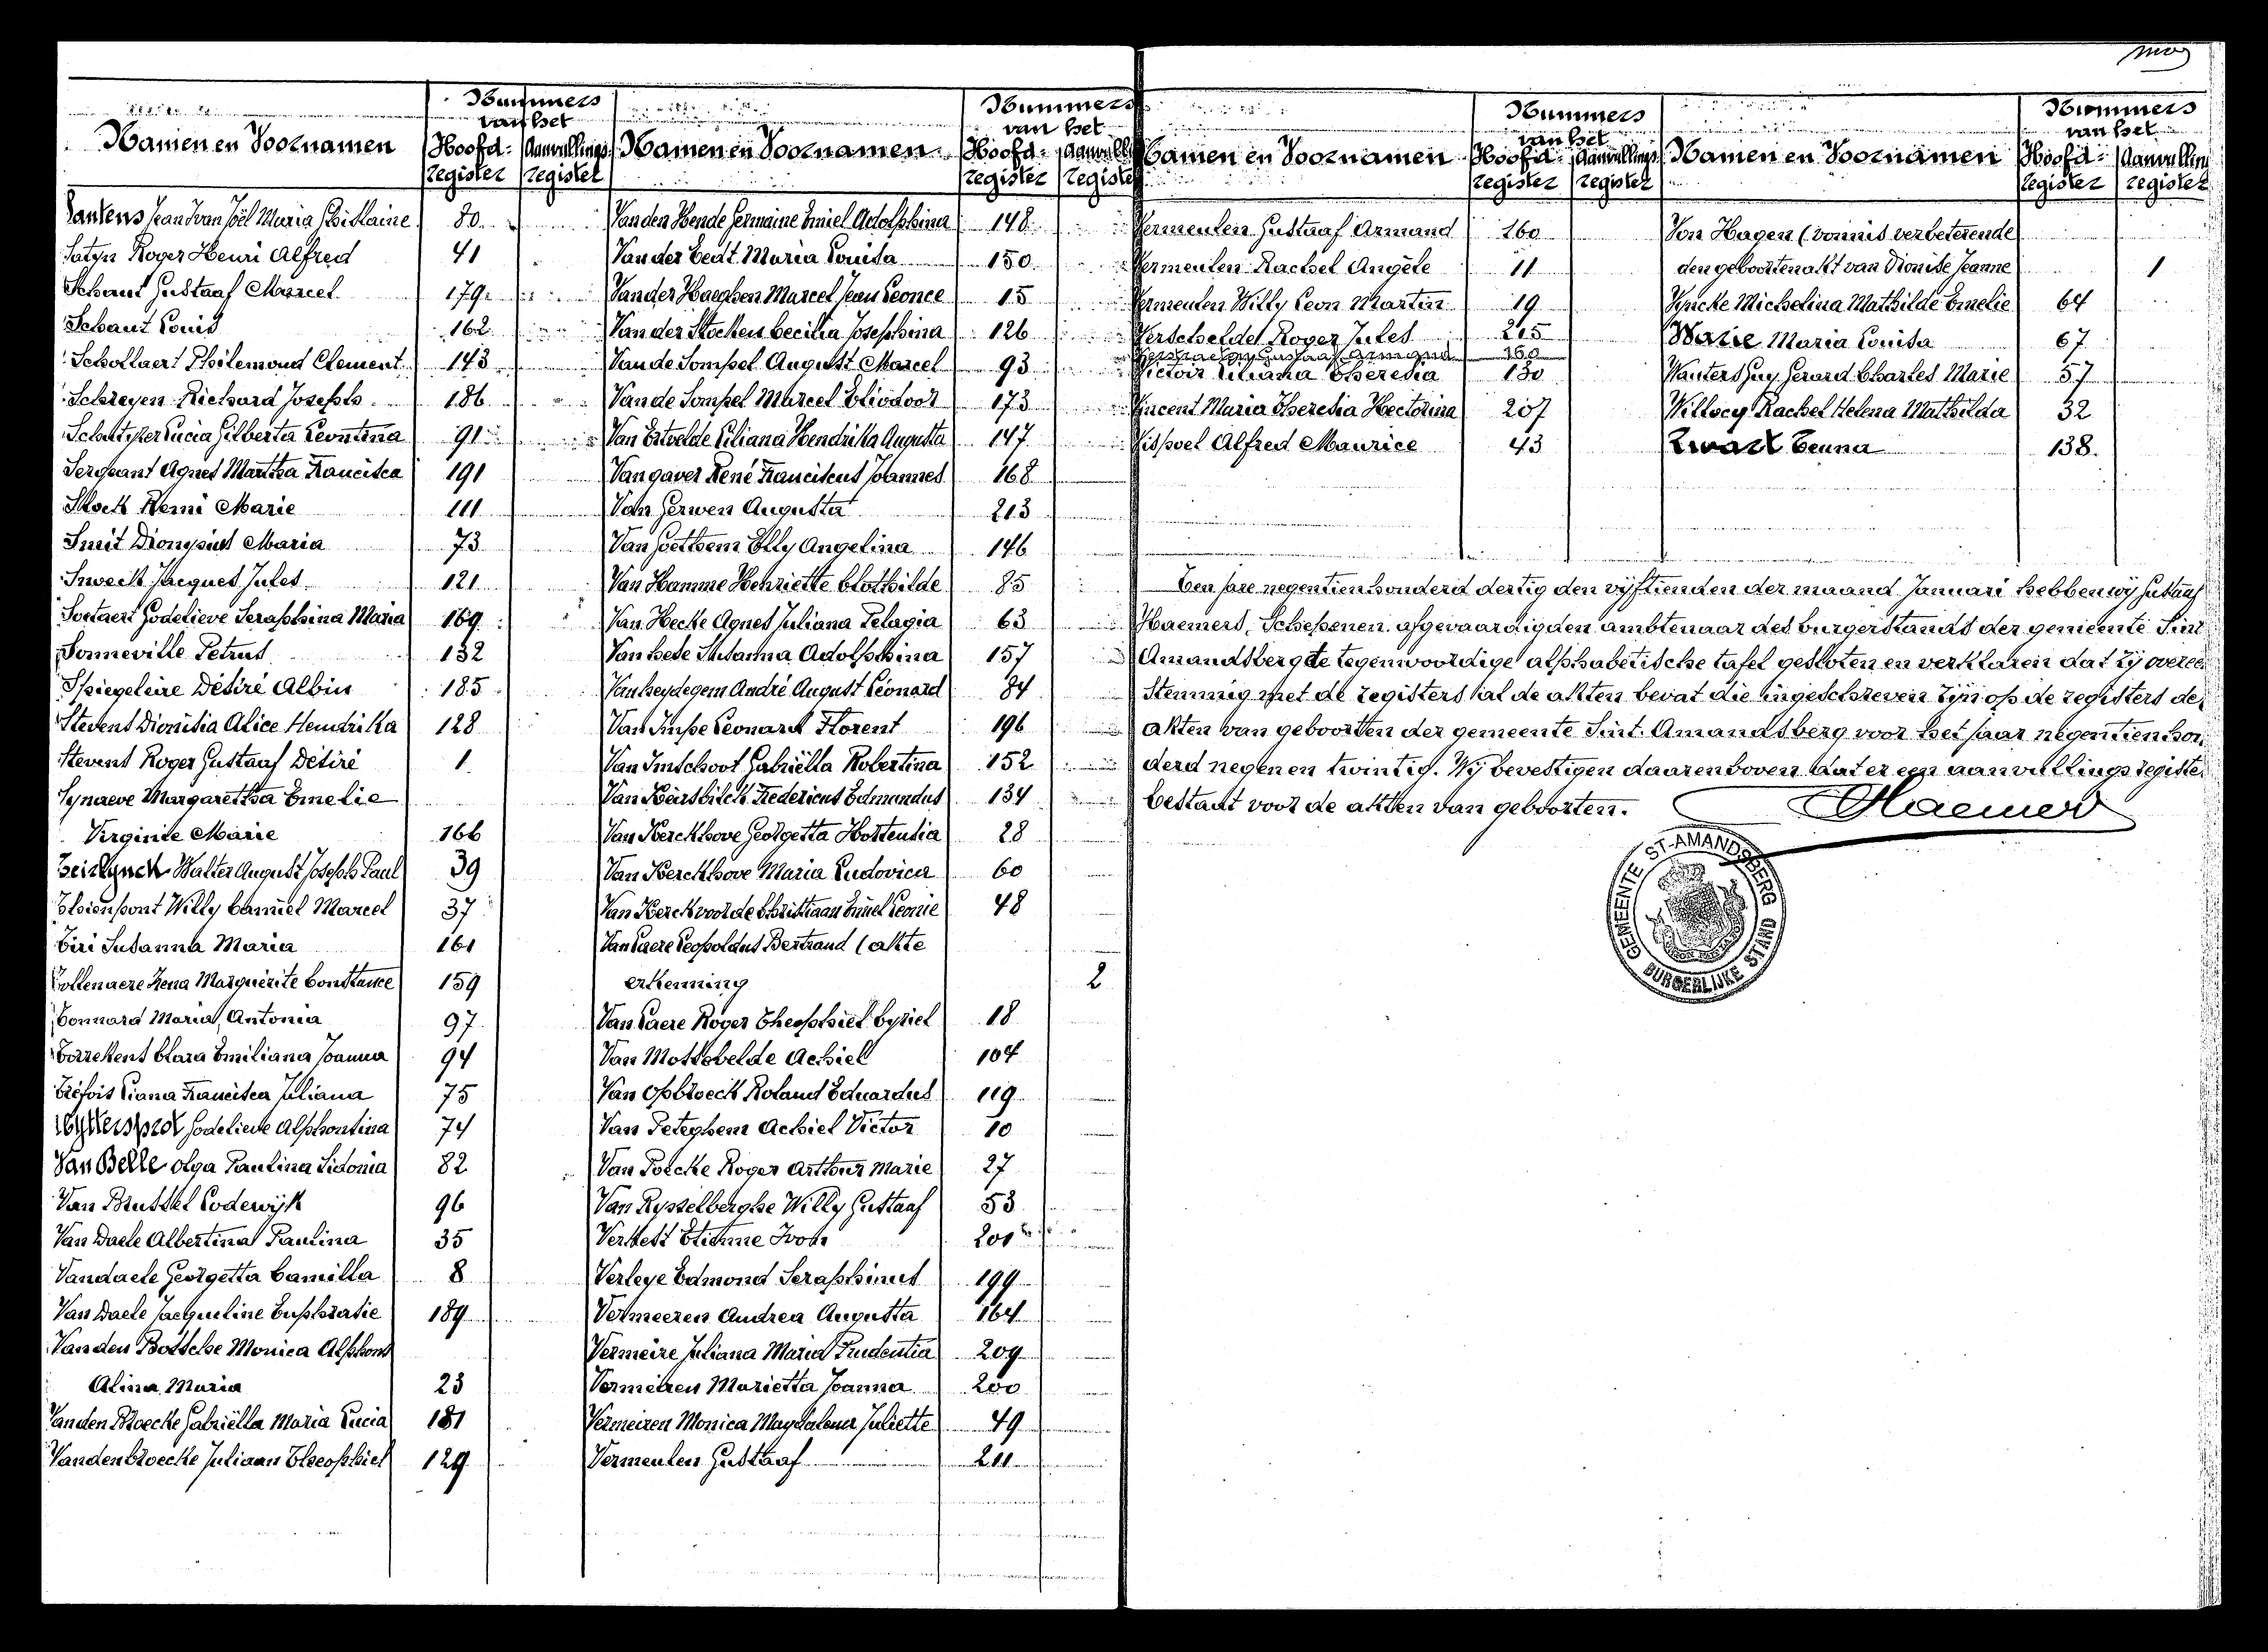 Nummers
van het
Namen en Voornamen Hoofd- Aanvullings
register register
Santens Jean Ivan Joël Maria Ghislaine 80
Satyn Roger Henri Alfred 41
Schaut Gustaaf Marcel 179
Schaut Louis 162
Schollaert Philemond Clement 143
Schreyen Richard Joseph 186
Lucia Gilberta Leontina 91
Sergeant Agnes Martha Francisca 191
Remi Marie 111
Smit Dionysius Maria 73
Jacques Jules 121
Soetaert Godelieve Seraphina Maria 169
Sonneville Petrus 132
Spiegeleire Désiré Albin 185
Stevens Dionisia Alice Hendrika 128
Stevens Roger Gustaaf Désiré 1
Synaeve Margaretha Emelie
Virginie Marie 166
Teirlynck Walter August Joseph Paul 39
Thienpont Willy Camiel Marcel 37
Susanna Maria 161
Tollenaere Marguerite Constance 159
Tonnard Maria Antonia 97
Torrekens Clara Emiliana Joanna 94
Tréfois Liana Francisca Juliana 75
Uyttersprot Godelieve Alphontina 74
Van Belle Olga Paulina Sidonia 82
Van Brussel Lodewijk 96
Van Daele Albertina Paulina 35
Vandaele Georgetta Camilla 8
Van Daele Jacqueline Euphrasie 189
Van den Bossche Monica Alphons
Alina Maria 23
Van den Broecke Gabriëlla Maria Lucia 181
Vandenbroecke Juliaan Theophiel 129
Nummers
van het
Namen en Voornamen Hoofd- Aanvull
register registe
Van den Hende Germaine Emiel Adolphina 148
Van der Maria Louisa 150
Van der Haeghen Marcel Jean Leonce 15
Van der Stocken Cecilia Josephina 126
Van de Sompel August Marcel 93
Van de Sompel Marcel Eliodoor 173
Van Ertvelde Liliana Hendrika Augusta 147
Van gaver René Franciscus Joannes 168
Van Gerwen Augusta 213
Van Goethem Elly Angelina 146
Van Hamme Henriette Clothilde 85
Van Hecke Agnes Juliana Pelagia 63
Van hese Susanna Adolphina 157
Vanheydegem André August Léonard 84
Van Impe Leonard Florent 196
Van Imschoot Gabriëlla Robertina 152
Van Keirsbilck Fredericus Edmondus 134
Van Kerckhove Georgetta Hortensia 28
Van Kerckhove Maria Ludovica 60
Van Kerckvoorde Christiaan Emiel Leonie 48
Van Laere Leopoldus Bertrand (akte
erkenning 2
Van Laere Roger Theophiel Cyriel 18
Van Mossevelde Achiel 104
Van Opbroeck Roland Eduardus 119
Van Peteghem Achiel Victor 10
Van Poecke Roger Arthur Marie 27
Van Rysselberghe Willy Gustaaf 53
Verhest Etienne Ivon 201
Verleye Edmond Seraphinus 199
Vermeeren Andrea Augusta 164
Vermeire Juliana Maria Prudentia 209
Vermeiren Marietta Joanna 200
Vermeiren Monica Magdalena Juliette 49
Vermeulen Gustaaf 211
Nummers
van het
Namen en Voornamen Hoofd- Aanvullings
register register
Vermeulen Gustaaf Armand 160
Vermeulen Rachel Angèle 11
Vermeulen Willy Leon Martin 19
Verschelde Roger Jules 215
Gustaaf Armand 160
Victoir Liliana Theresia 130
Vincent Maria Theresia Hectorina 207
Vispoel Alfred Maurice 43
Nummers
van het
Namen en Voornamen Hoofd- Aanvullin
register register
Von Hagen (vonnis verbeterende
den geboortenakt van Dionise Jeanne 1
Vyncke Michelina Mathilde Emelie 64
Maria Louisa 67
Wauters Guy Gerard Charles Marie 57
Willocq Rachel Helena Mathilda 32
Zwart Tenna 138.
Ten jare negentienhonderd dertig den vijftienden der maand Januari hebben wij Gustaaf
Haemers, Schepenen afgevaardigden ambtenaar des burgerstands der gemeente Sint
Amandsberg de tegenwoordige alphabetische tafel gesloten en verklaren dat zij overeen
stemmig met de registers al de akten bevat die ingeschreven zijn op de registers der
akten van geboorten der gemeente Sint-Amandsberg voor het jaar negentienhon
derd negen en twintig. Wij bevestigen daarenboven dat er een aanvullingsregister
bestaat voor de akten van geboorten.
GHaemers
GEMEENTE ST-AMANDSBERG
BURGERLIJKE STAND